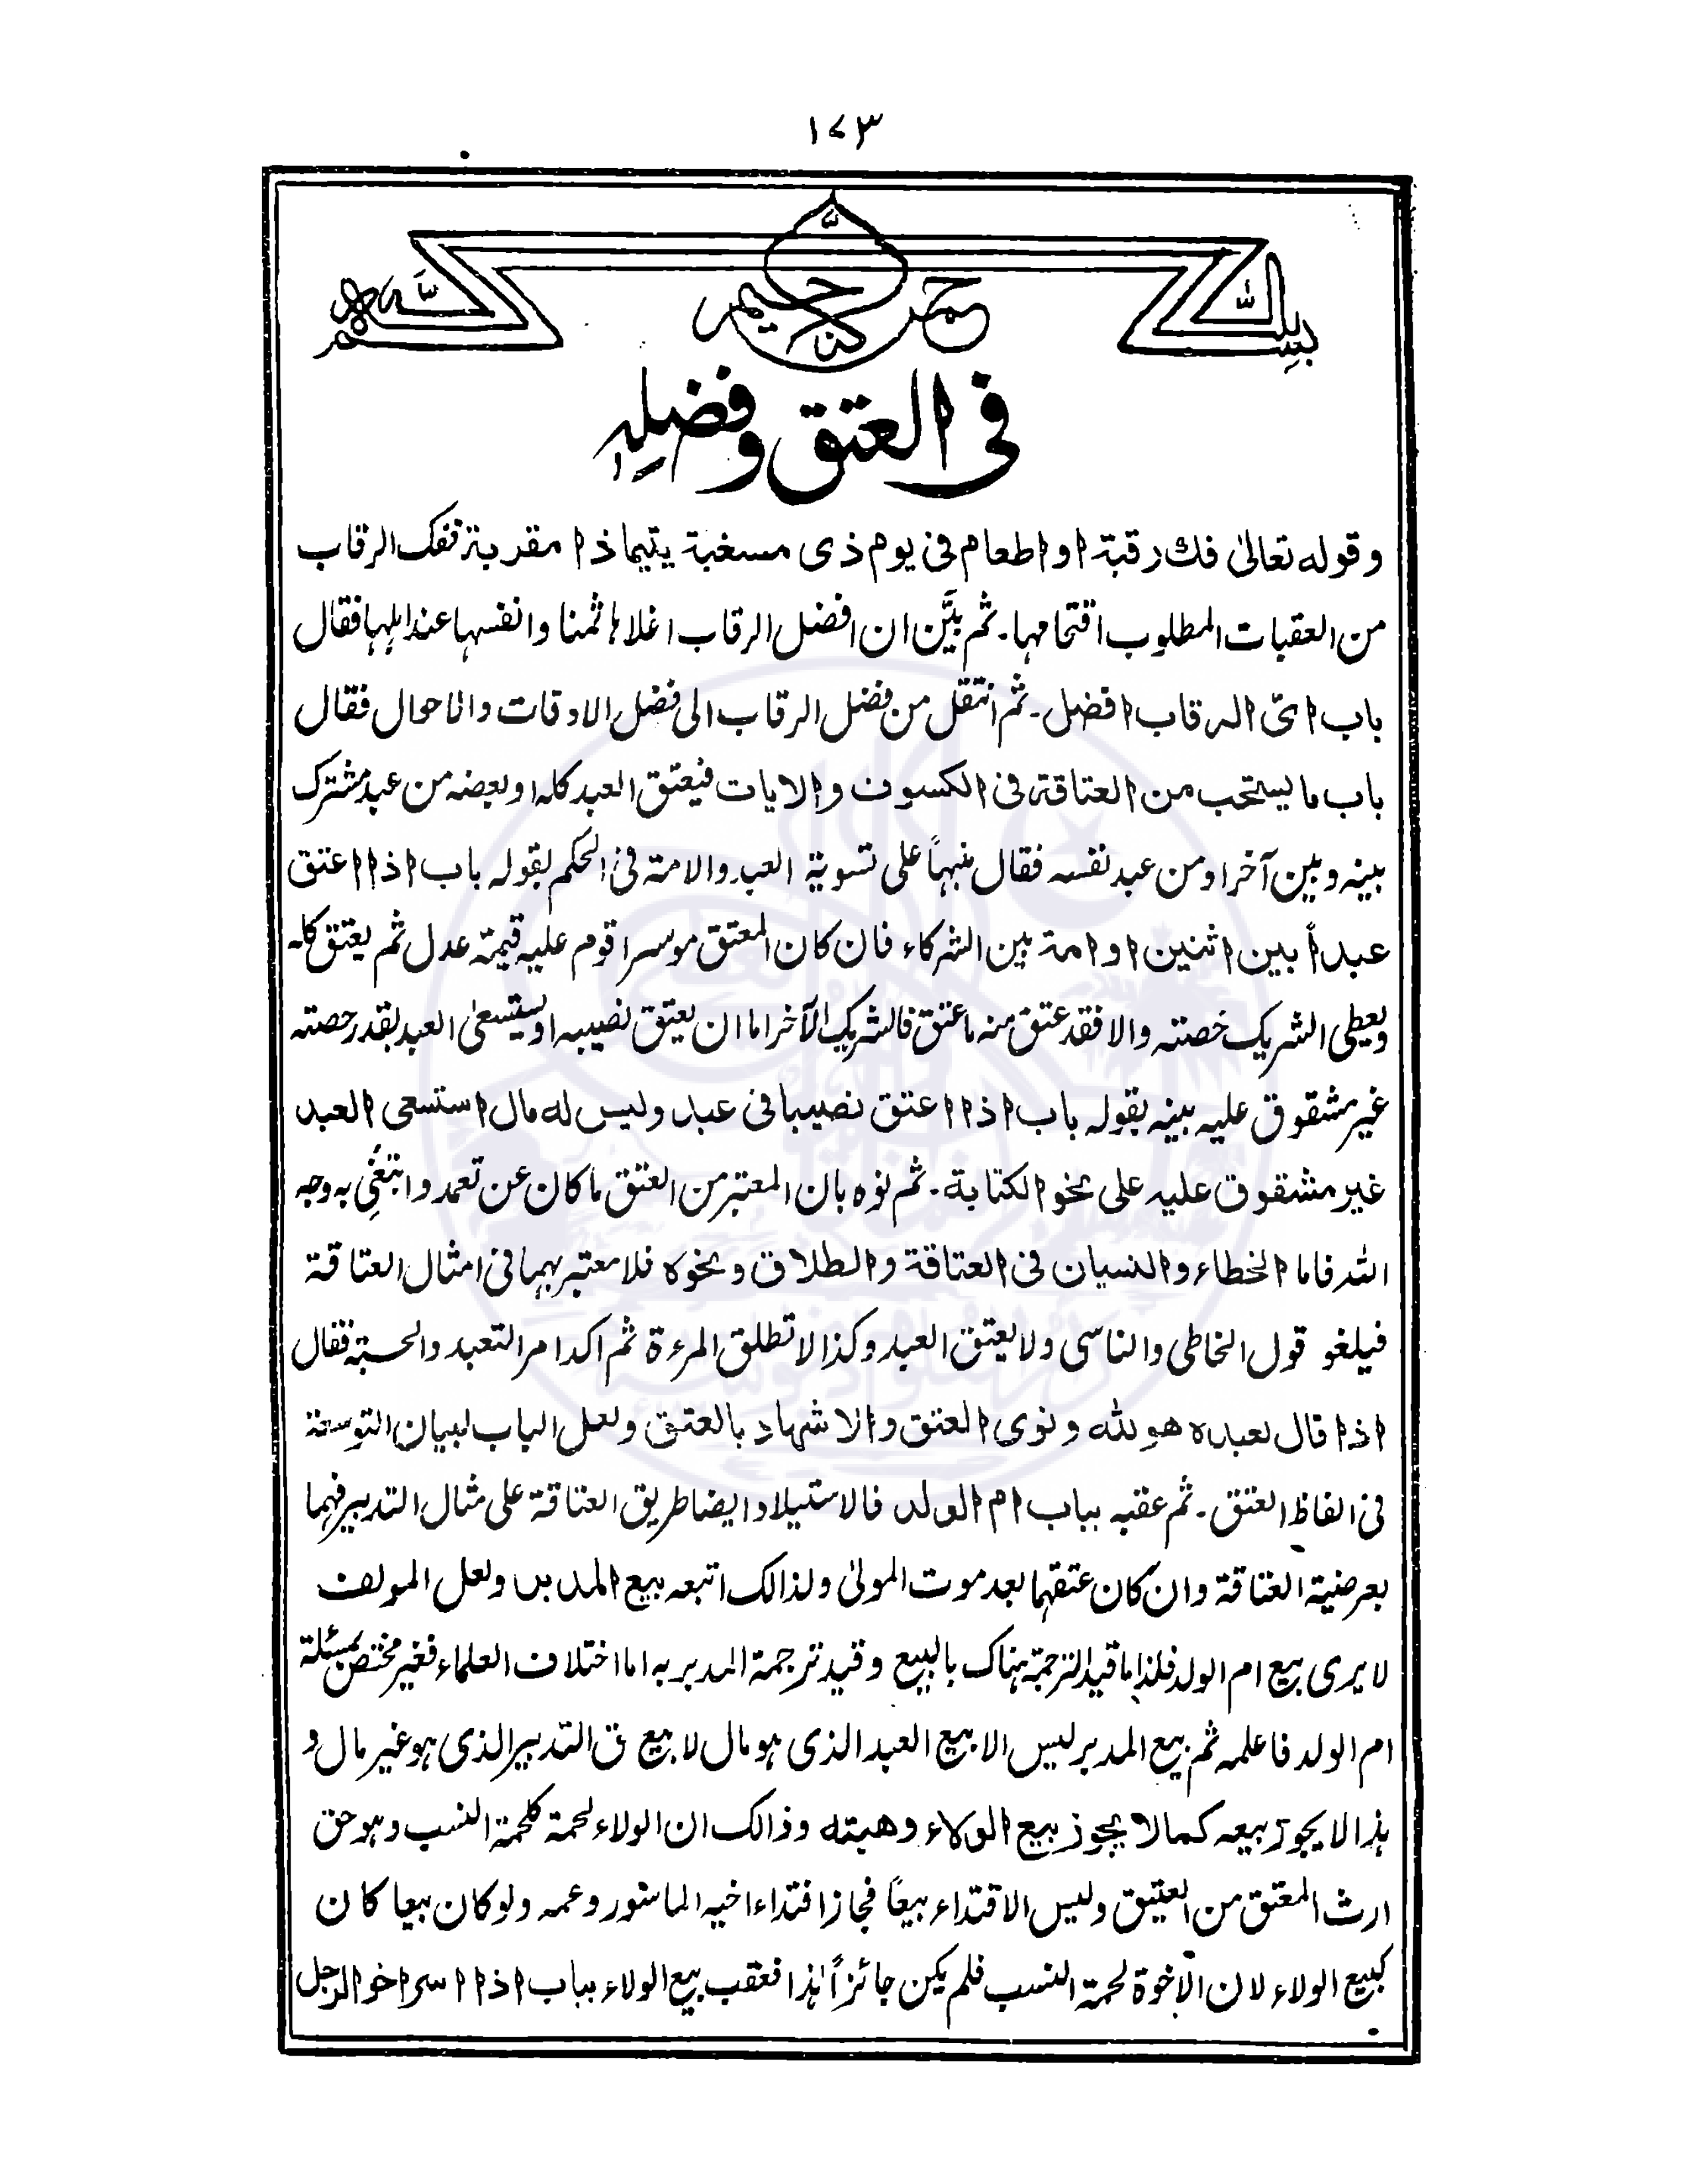 ١٧٣
بسم الله الرحمن الرحيم
فی العتق وفضلہ
وقوله تعالیٰ فك رقبة او اطعام فی یوم ذی مسغبة یتیما ذا مقربة تفک الرقاب
من العقبات المطلوب اقتحامها۔ ثم بیَّن ان افضل الرقاب اغلاہا ثمنا وانفسہا عند اہلہا فقال
باب ای الرقاب افضل۔ ثم انتقل من فضل الرقاب الی فضل الاوقات والاحوال فقال
باب ما یستحب من العتاقة فی الکسوف والایات فیعتق العبد کلہ او بعضہ من عبد مشترک
بینہ وبین آخر او من عبد نفسہ فقال منبہاً علی تسویة العبد والامة فی الحکم بقولہ باب اذا اعتق
عبداً بین اثنین او امة بین الشرکاء فان کان المعتق موسرا قوم علیہ قیمة عدل ثم یعتق کلہ
ویعطی الشریک حصتہ والا فقد عتق منہ ما عتق فالشریک الآخر اما ان یعتق نصیبہ او یستسعیٰ العبد بقدر حصتہ
غیر مشقوق علیہ بینہ بقولہ باب اذا اعتق نصیبا فی عبد ولیس له مال استسعی العبد
غیر مشقوق علیہ علی نحو الکتابة۔ ثم نوہ بان المعتبر من العتق ما کان عن تعمد وابتغی بہ وجہ
اللہ فاما الخطاء والنسیان فی العتاقة والطلاق ونحوہ فلا معتبر بہما فی امثال العتاقة
فیلغو قول الخاطی والناسی ولا یعتق العبد وکذا لا تطلق المرءة ثم اکد امر التعبد والحسبة فقال
اذا قال لعبدہ هو للہ ونوی العتق والاشهاد بالعتق ولعل الباب لبیان التوسعة
فی الفاظ العتق۔ ثم عقبہ بباب ام الولد فالاستیلاد ایضا طریق العتاقة علی مثال التدبیر فہما
بعرضیة العتاقة وان کان عتقہما بعد موت المولیٰ ولذالک اتبعہ بیع المدبر ولعل المولف
لا یری بیع ام الولد فلذا ما قید الترجمة ہناک بالبیع وقید ترجمة المدبر بہ اما اختلاف العلماء فغیر مختص بمسئلة
ام الولد فاعلمہ ثم بیع المدبر لیس الا بیع العبد الذی ہو مال لا بیع حق التدبیر الذی ہو غیر مال و
ہذا لا یجوز بیعہ کما لا یجوز بیع الولاء وهبته وذالک ان الولاء لحمة کلحمة النسب وہو حق
ارث المعتق من العتیق ولیس الافتداء بیعاً فجاز افتداء اخیہ الماسور وعمہ ولو کان بیعا کان
کبیع الولاء لان الاخوة لحمة النسب فلم یکن جائزاً لہذا فعقب بیع الولاء بباب اذا اسر اخو الرجل